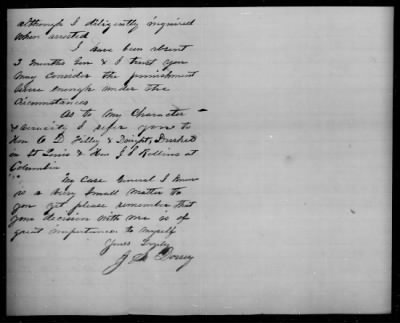 although I diligently inquired
when arrested
I have been absent
3 months Gen & I trust you
may consider the punishment
severe enough under the
circumstances
As to my Character
& veracity I refer you to
Hon O. D. Filley & Dwight Durkee
in St Louis & Hon J S Rollins at
Columbia
My Case General I know
is a very small matter to
you yet please remember that
your decision with me is of
great importance to myself
Yours Truly
J Dorsey